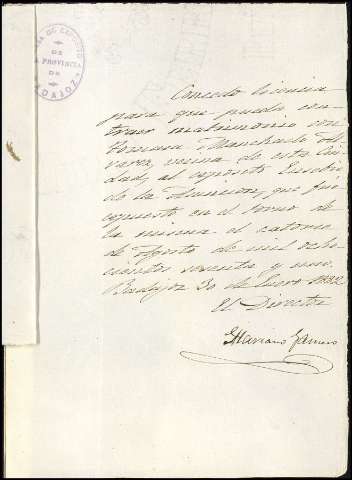 CASA DE EXPÓSITOS
DE
LA PROVINCIA
DE
BADAJOZ
Concedo licencia
para que pueda con-
traer matrimonio con
Romana Manchado Al-
varez, vecina de esta Ciu-
dad, al expósito Eusebio
de la Asuncion, que fué
expuesto en el torno de
la misma el catorce
de Agosto de mil ocho-
cientos sesenta y uno.
Badajoz 30 de Enero 1882
El Director
Mariano